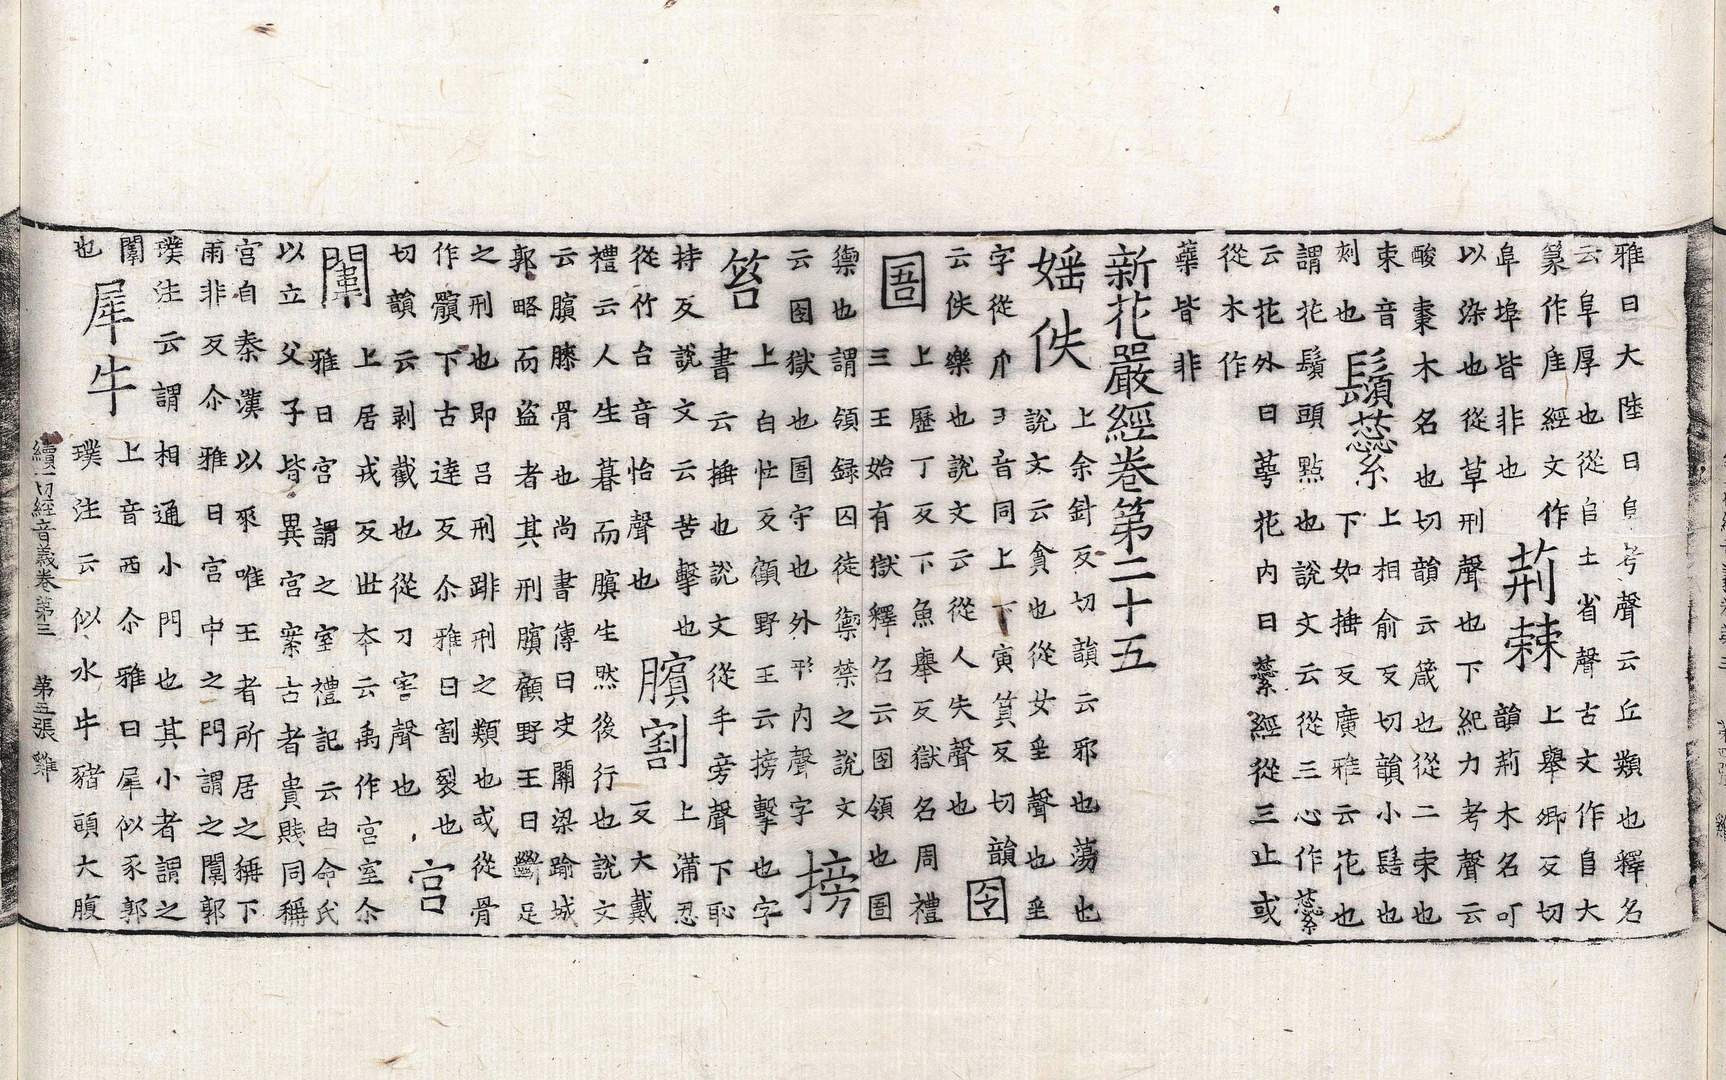 雅曰大陸曰𨸏考聲云丘類也釋名
云阜厚也從𠂤土省聲古文作𨸏大
篆作𨹧經文作
阜埠皆非也
荊棘
上舉卿反切
韻荊木名叮
以染也從草刑聲也下紀力考聲云
酸棗木名也切韻云箴也從二朿也
朿音
刺也
鬚蘂
上相俞反切韻小髻也
下如捶反廣雅云花也
謂花鬚頭點也說文云從三心作蘂
云花外曰萼花内曰蘂經從三止或
從木作
蘂皆非
新花嚴經卷第二十五
媱佚
上余針反切韻云邪也蕩也
說文云貪也從女㸒聲也㸒
字從爪𡈼音同上下寅質反切韻
云佚樂也說文云從人失聲也
囹圄
上歷丁反下魚舉反獄名周禮
三王始有獄釋名云囹領也圄
禦也謂領録囚徒禦禁之說文
云囹獄也圄守也外形内聲字
搒笞
上白忙反顧野王云搒擊也字
書云捶也說文從手旁聲下恥
持反說文云苦擊也
從竹台音怡聲也
臏割
上蒲忍
反大戴
禮云人生暮而臏生然後行也說文
云臏膝骨也尚書傳曰决關梁踰城
郭略而盜者其刑臏顧野王曰斷足
之刑也即呂刑跸刑之類也或從骨
作髕下古達反尒雅曰割裂也
切韻云剥截也從刀害聲也
宮闈
上居戎反丗本云禹作宮室尒
雅曰宮謂之室禮記云由命氏
以立父子皆異宮案古者貴賤同稱
宮自秦漢以來唯王者所居之稱下
雨非反尒雅曰宮中之門謂之闈郭
璞注云謂相通小門也其小者謂之
闈
也
犀牛
上音西尒雅曰犀似豕郭
璞注云似水牛豬頭大腹
續一切經音義卷第三 第五張 雞